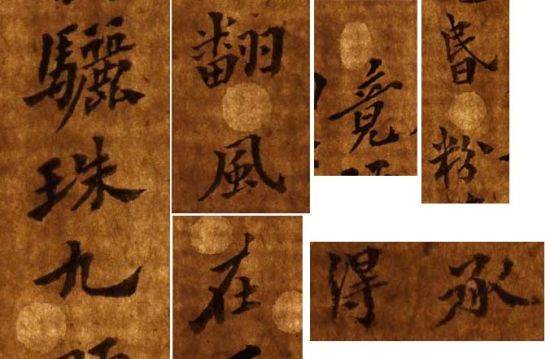 驪珠九
翻風
竟
昏粉
在
得
承